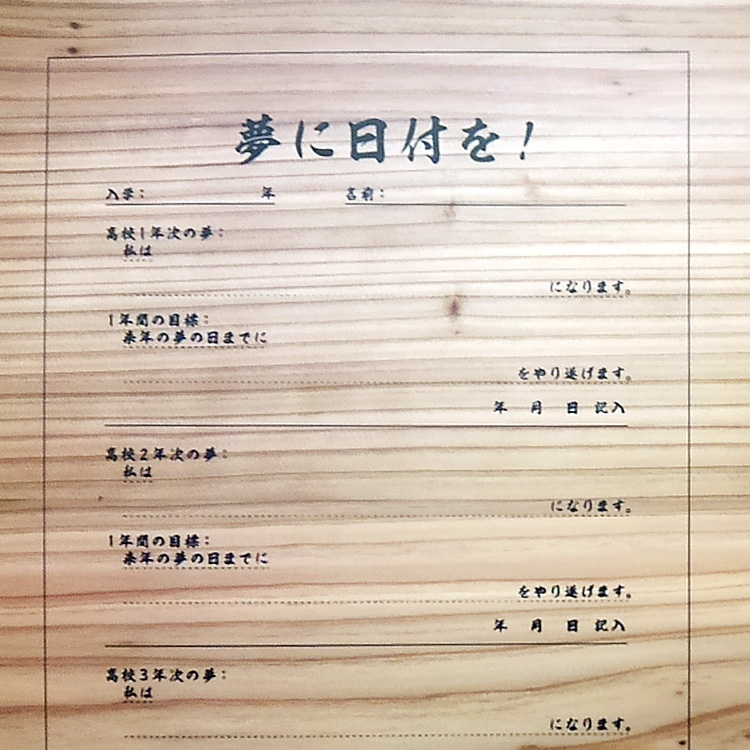 夢に日付を!
入学: 年 名前:
高校1年次の夢:
私は
になります。
1年間の目標:
来年の夢の日までに
をやり遂げます。
年 月 日 記入
高校2年次の夢:
私は
になります。
1年間の目標:
来年の夢の日までに
をやり遂げます。
年 月 日 記入
高校3年次の夢:
私は
になります。